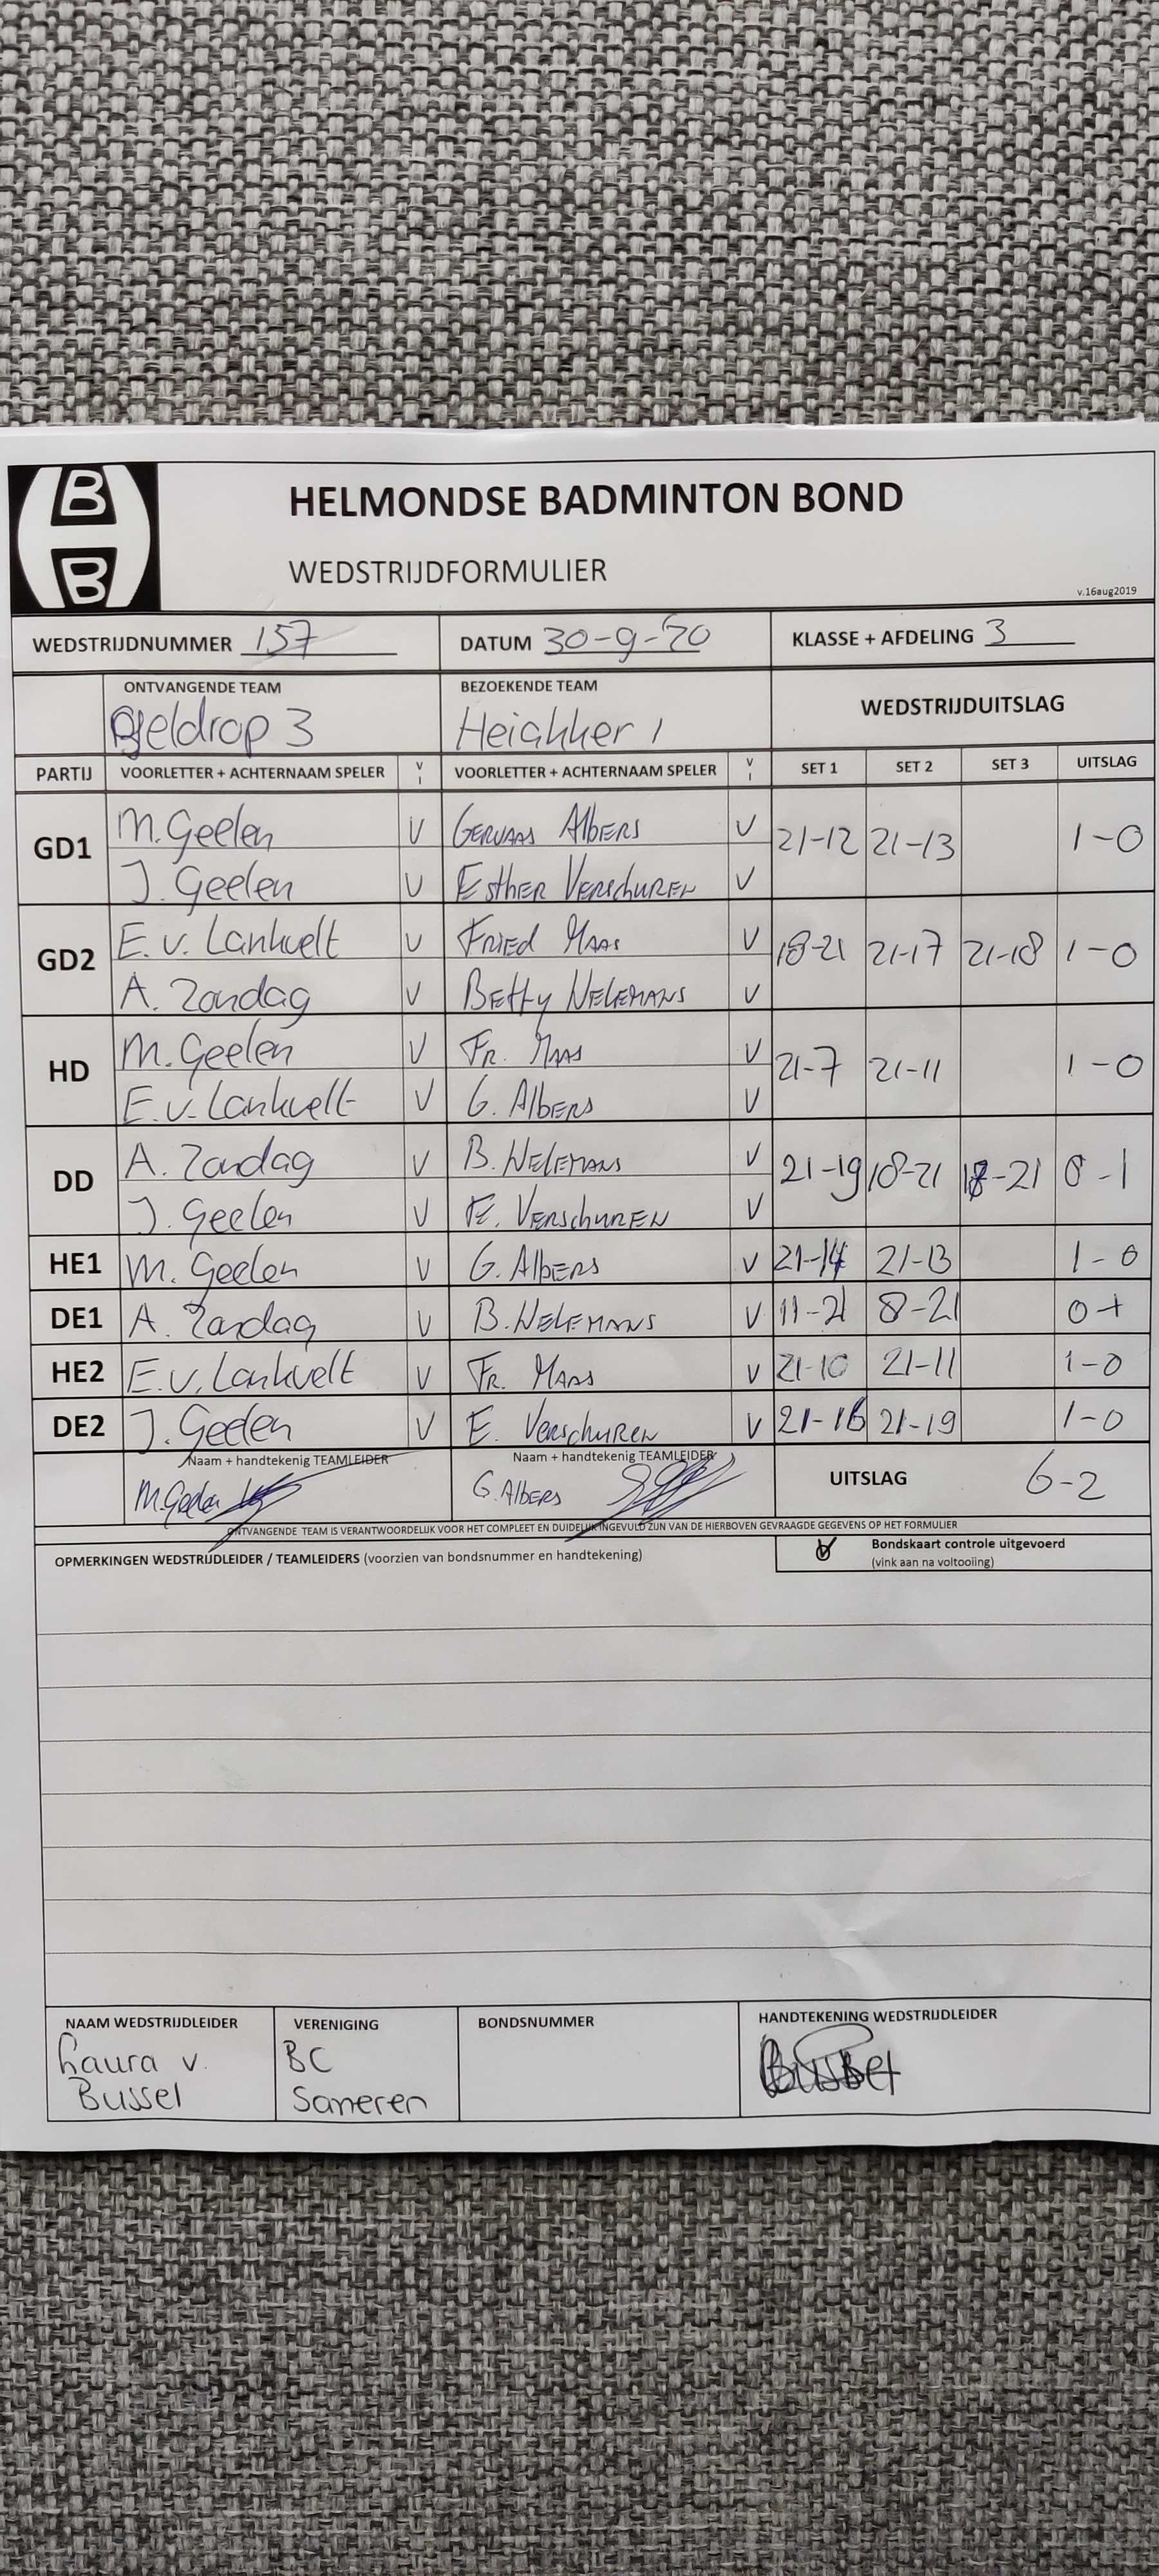 B
B
HELMONDSE BADMINTON BOND
WEDSTRIJDFORMULIER
v.16aug2019
WEDSTRIJDNUMMER 157 DATUM 30-9-20 KLASSE + AFDELING 3
ONTVANGENDE TEAM BEZOEKENDE TEAM WEDSTRIJDUITSLAG
geldrop 3 Heiakker 1
PARTIJ VOORLETTER + ACHTERNAAM SPELER V I VOORLETTER + ACHTERNAAM SPELER V I SET 1 SET 2 SET 3 UITSLAG
GD1 M. Geelen V GERVAAS AlbERS V 21-12 21-13 1-0
J. Geelen V EsthER VERSchuREN V
GD2 E. v. Lankvelt V FRiEd MAAS V 18-21 21-17 21-18 1-0
A. Zondag V BEtty NELEMANS V
HD M. Geelen V FR. MAAS V 21-7 21-11 1-0
E. v. Lankvelt V G. AlbERS V
DD A. Zondag V B. NELEMANS V 21-19 18-21 18-21 0-1
J. Geelen V E. VERSchuREN V
HE1 M. Geelen V G. AlbERS V 21-14 21-13 1-0
DE1 A. Zondag V B. NELEMANS V 11-21 8-21 0-1
HE2 E. v. Lankvelt V FR. MAAS V 21-10 21-11 1-0
DE2 J. Geelen V E. VERSchuREN V 21-16 21-19 1-0
Naam + handtekenig TEAMLEIDER Naam + handtekenig TEAMLEIDER UITSLAG 6-2
M. Geelen G. AlbERS
ONTVANGENDE TEAM IS VERANTWOORDELIJK VOOR HET COMPLEET EN DUIDELIJK INGEVULD ZIJN VAN DE HIERBOVEN GEVRAAGDE GEGEVENS OP HET FORMULIER
OPMERKINGEN WEDSTRIJDLEIDER / TEAMLEIDERS (voorzien van bondsnummer en handtekening) Bondskaart controle uitgevoerd
(vink aan na voltooiing)
NAAM WEDSTRIJDLEIDER VERENIGING BONDSNUMMER HANDTEKENING WEDSTRIJDLEIDER
Laura v. BC Bussel
Bussel Someren